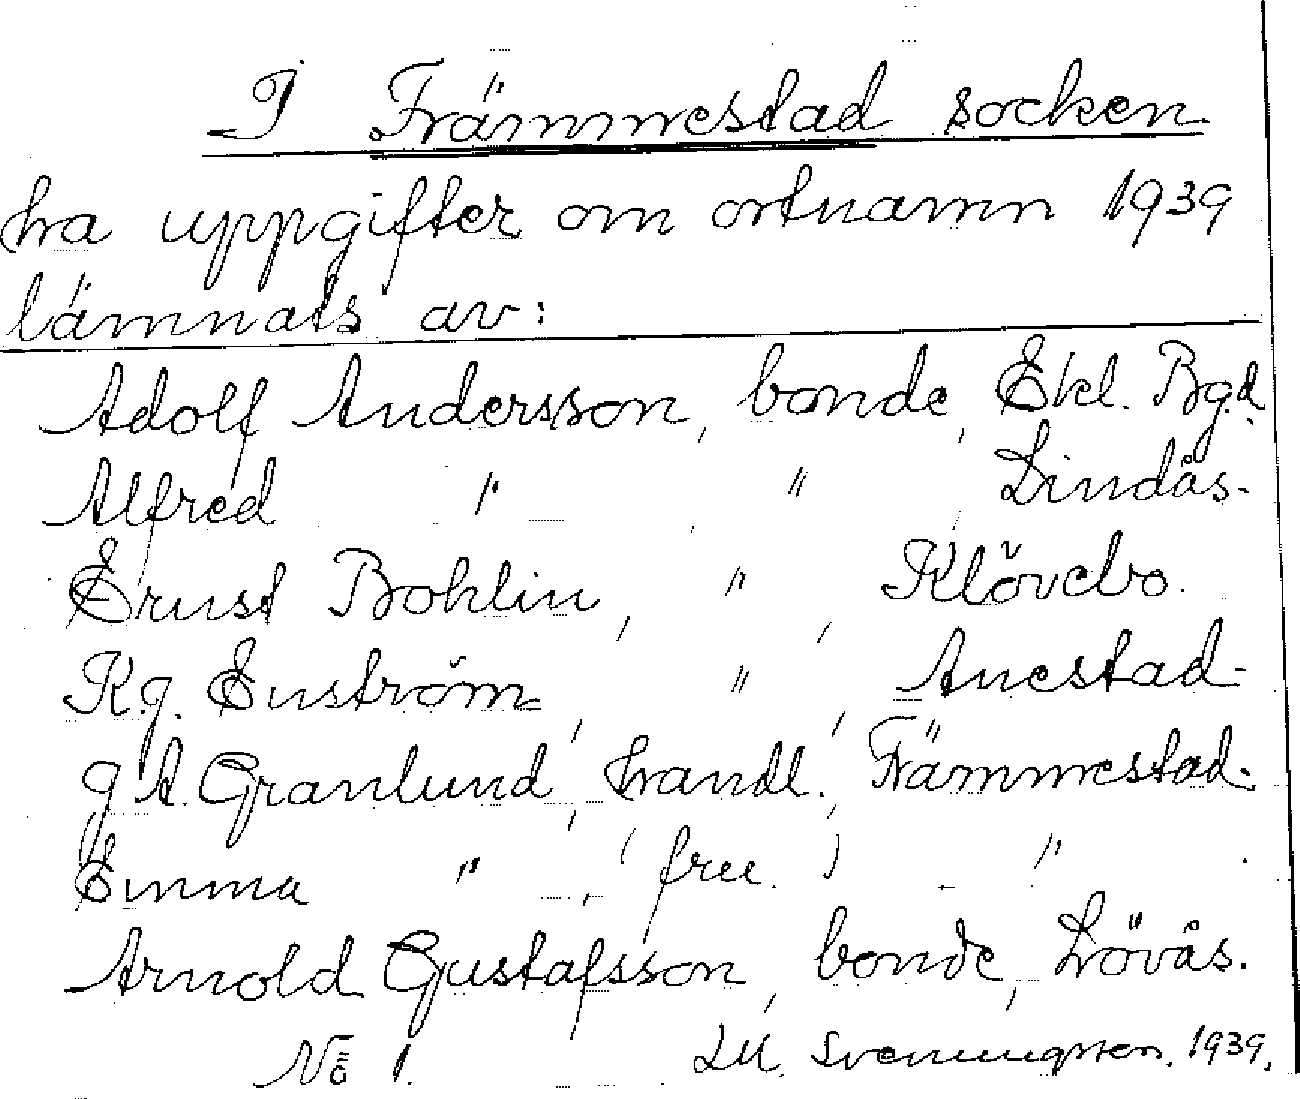 I Främmestad socken
ha uppgifter om ortnamn 1939
lämnats av:
Adolf Andersson, bonde, Ekl. Bgd.
Alfred " " Lindås.
Ernst Bohlin, " , Klövebo.
Kg. Enström, " , Anestad.
G. A. Granlund, handl., Främmestad.
Emma " , (fru.) "
Arnold Gustafsson, bonde, Lövås.
No 1. Svenungsson. 1939.